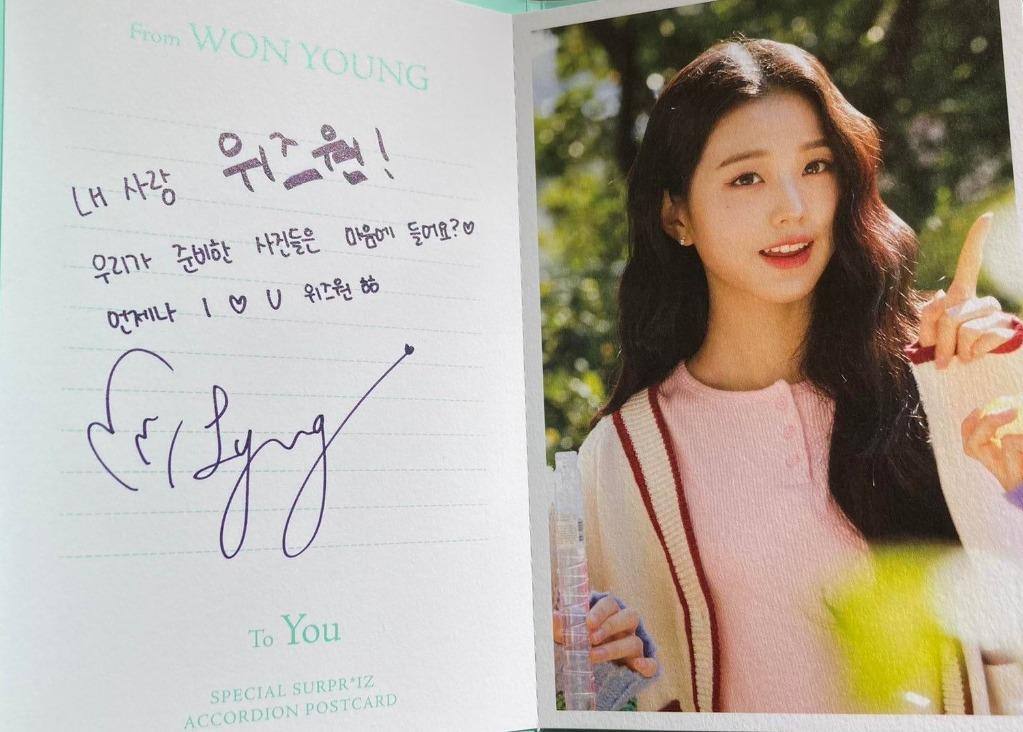 From WON YOUNG
내 사랑 위즈원!
우리가 준비한 사진들은 마음에 들어요?♡
언제나 I ♡ U 위즈원
To You
SPECIAL SURPR*IZ
ACCORDION POSTCARD